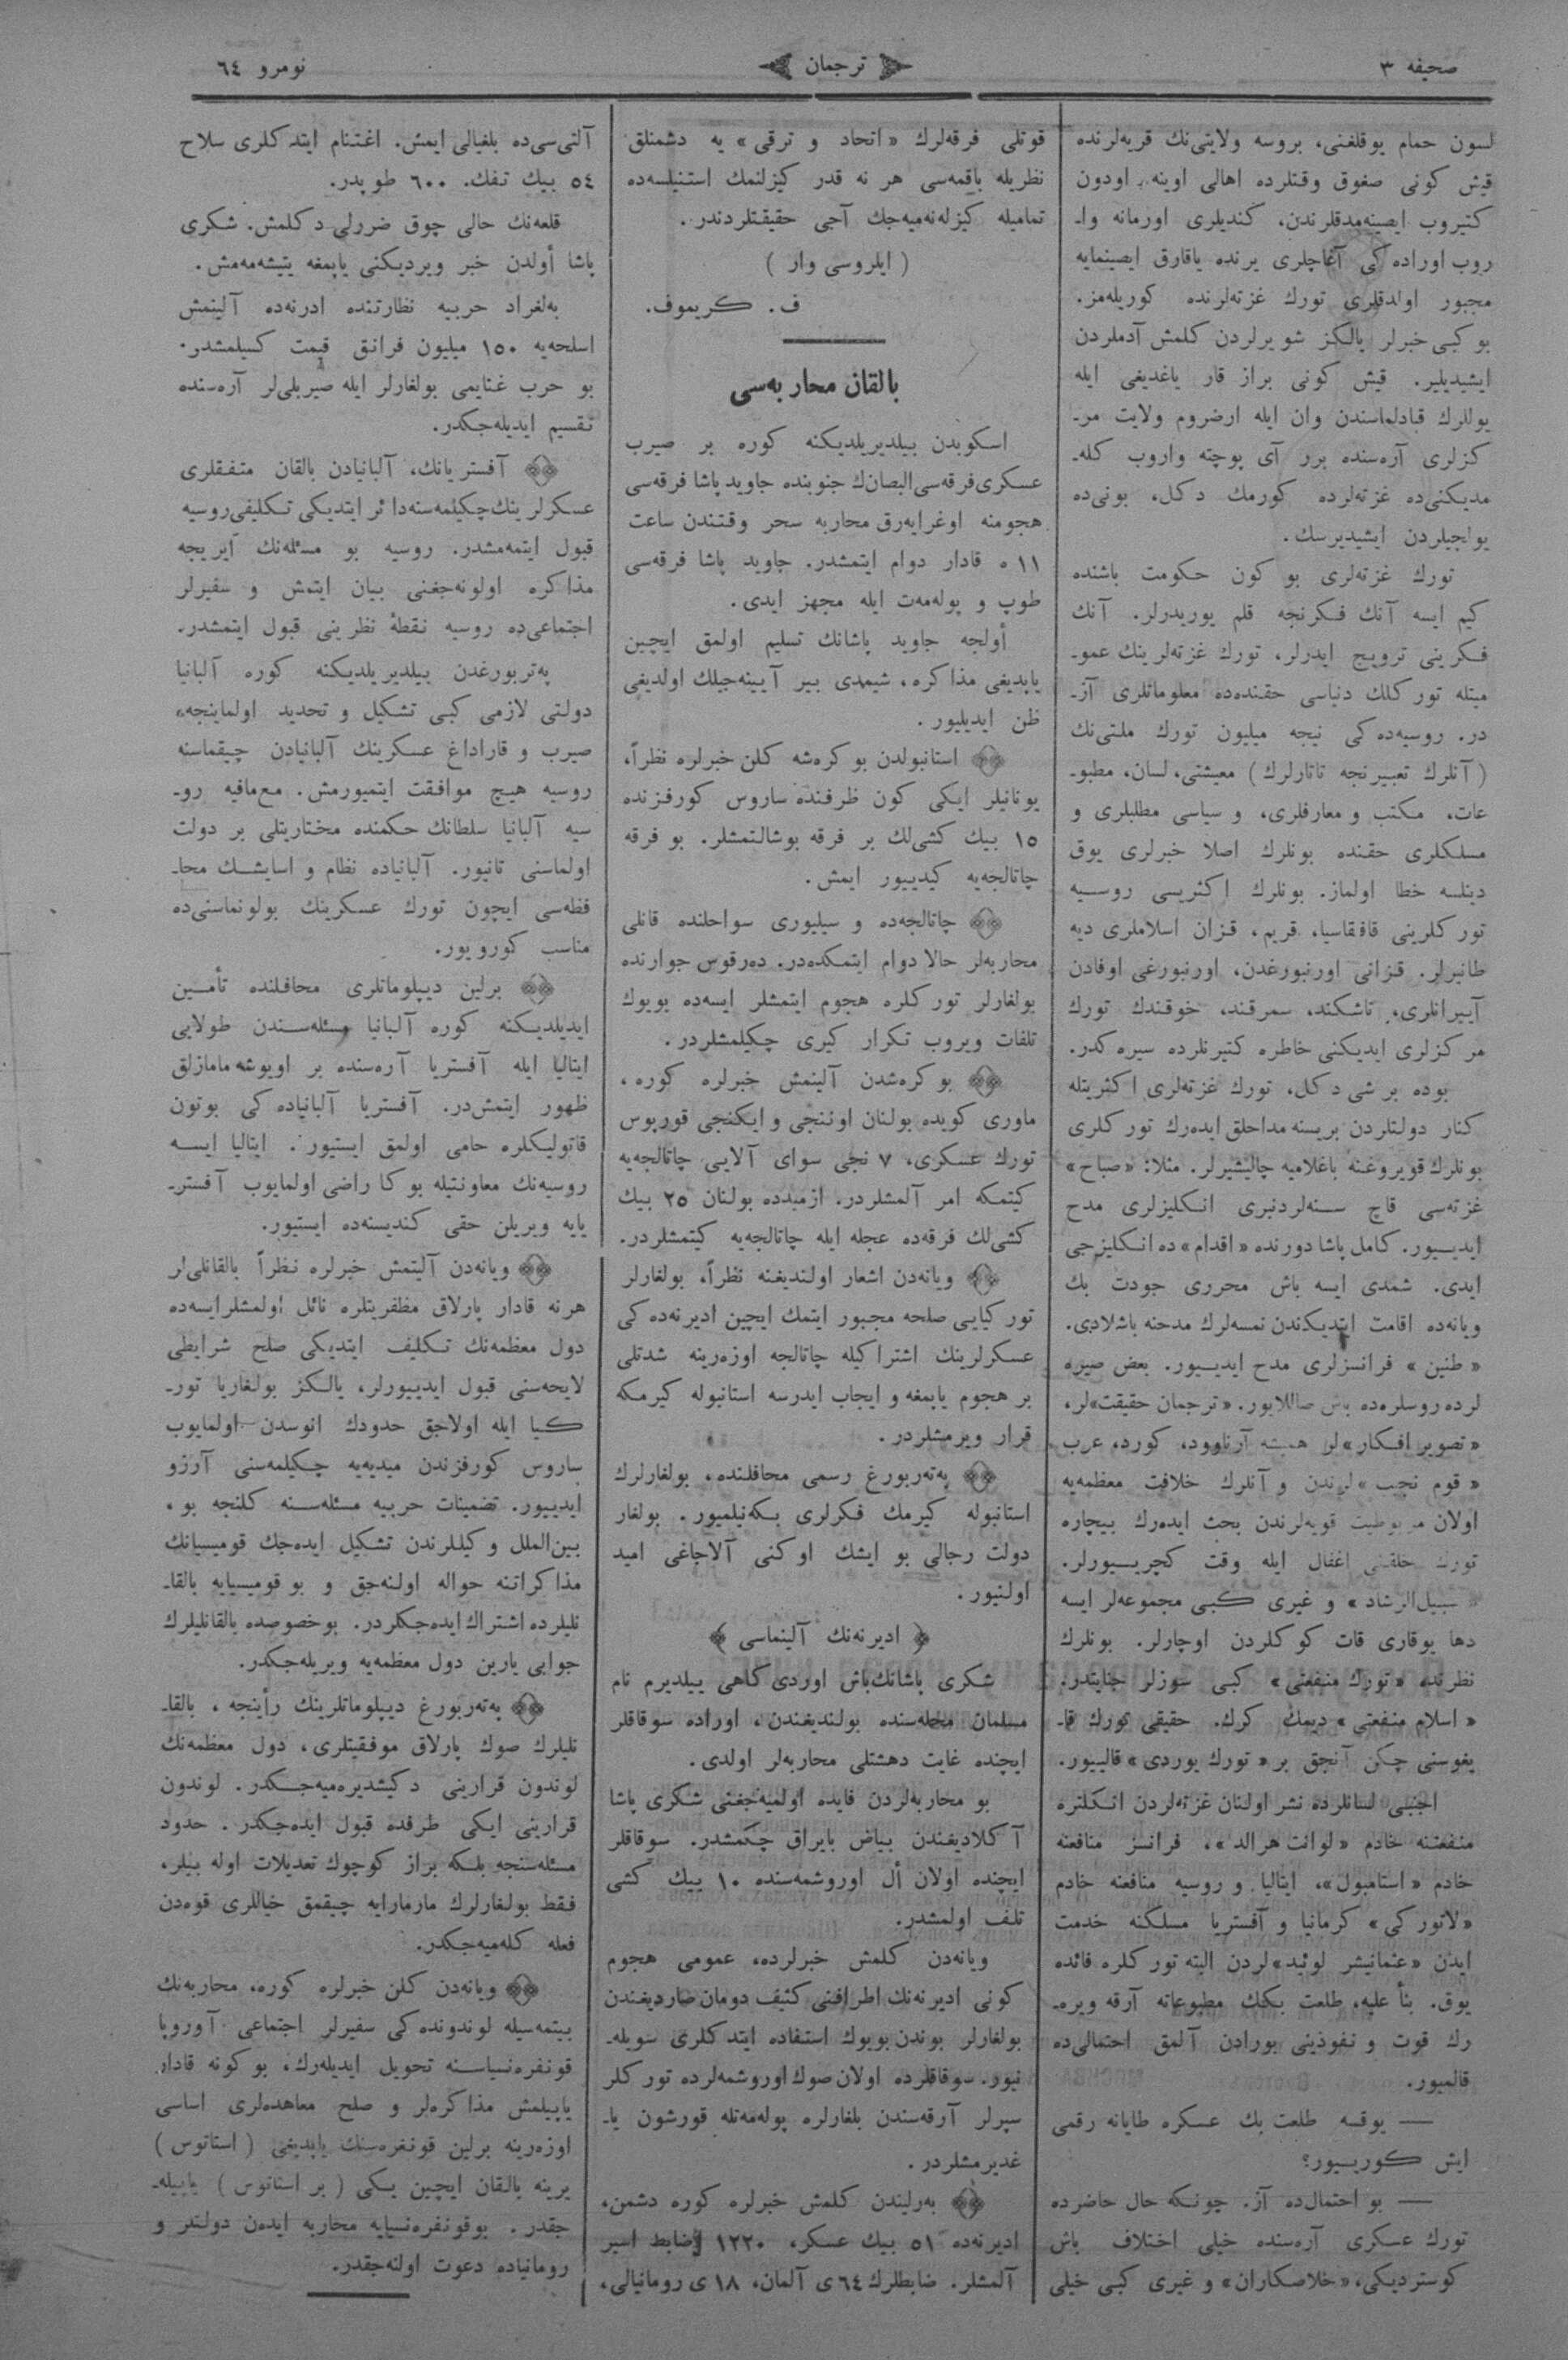 صحیفه ٣
ترجمان
نومرو ٦٤
لسون حمام یوقلغنی، بروسه ولایتی‌نك قریه‌لرنده
قیش كونی صغوق وقتلرده اهالی اوینه اودون
كتیروب ایصینه‌مدقلرندن، كندیلری اورمانه وا۔
روب اوراده‌كی آغاچلری یرنده یاقارق ایصینمایه
مجبور اولدقلری تورك غزته‌لرنده كوریله‌مز.
بو كبی خبرلر یالكز شو یرلردن كلمش آدملردن
ایشیدیلیر. قیش كونی براز قار یاغدیغی ایله
یوللرك قپادلماسندن وان ایله ارضروم ولایت مر۔
كزلری آره‌سنده برر آی پوچته واروب كله۔
مدیكنی‌ده غزته‌لرده كورمك دكل، بونی‌ده
یولجیلردن ایشیدیرسك.
تورك غزته‌لری بو كون حكومت باشنده
كیم ایسه آنك فكرنجه قلم یوریدرلر. آنك
فكرینی ترویج ایدرلر، تورك غزته‌لرینك عمو۔
میتله توركلك دنیاسی حقنده‌ده معلوماتلری آز۔
در. روسیه‌ده‌كی نیجه میلیون تورك ملتی‌نك
(آنلرك تعبیرنجه تاتارلرك) معیشتی، لسان، مطبو۔
عات، مكتب و معارفلری، و سیاسی مطلبلری و
مسلكلری حقنده بونلرك اصلا خبرلری یوق
دینلسه خطا اولماز. بونلرك اكثریسی روسیه
توركلرینی قافقاسیا، قریم، قزان اسلاملری دیه
طانیرلر. قزانی اورنبورغدن، اورنبورغی اوفادن
آییرانلری، تاشكند، سمرقند، خوقندك تورك
مركزلری ایدیكنی خاطره كتیرنلرده سیره كدر.
بوده بر شی دكل، تورك غزته‌لری اكثریتله
كنار دولتلردن بریسنه مداحلق ایده‌رك توركلری
بونلرك قویروغنه باغلامیه چالیشیرلر. مثلا: «صباح»
غزته‌سی قاچ سنه‌لردنبری انكلیزلری مدح
ایدیییور. كامل پاشا دورنده «اقدام» ده انكلیزجی
ایدی. شمدی ایسه باش محرری جودت بك
ویانه‌ده اقامت ایتدیكندن نمسه‌لرك مدحنه باشلادی.
«طنین» فرانسزلری مدح ایدیییور. بعض صیره
لرده روسلره‌ده باش صاللایور. «ترجمان حقیقت»لر،
«تصویر افكار»لر همیشه آرناوود، كورد، عرب
«قوم نجیب»لرندن و آنلرك خلافت معظمه‌یه
اولان مربوطیت قویه‌لرندن بحث ایده‌رك بیچاره
تورك خلقنی اغفال ایله وقت كچریییورلر.
«سبیل‌الرشاد» و غیری كبی مجموعه‌لر ایسه
دها یوقاری قات كوكلردن اوچارلر. بونلرك
نظرنده «تورك منفعتی» كبی سوزلر جنایتدر.
«اسلام منفعتی» دیمك كرك. حقیقی تورك قا۔
یغوسنی چكن آنجق بر «تورك یوردی» قالییور.
اجنبی لسانلرده نشر اولنان غزته‌لردن انكلتره
منفعتنه خادم «لوانت هرالد»، فرانسز منافعنه
خادم «استامبول»، ایتالیا و روسیه منافعنه خادم
«لاتوركی» كرمانیا و آفستریا مسلكنه خدمت
ایدن «عثمانیشر لوئید»لردن البته توركلره فائده
یوق. بنأ علیه، طلعت بكك مطبوعاته آرقه ویره۔
رك قوت و نفوذینی بورادن آلمق احتمالی‌ده
قالمیور.
— یوقسه طلعت بك عسكره طایانه رقمی
ایش كوریییور؟
— بو احتمال‌ده آز. چونكه حال حاضرده
تورك عسكری آره‌سنده خیلی اختلاف باش
كوستردیكی، «خلاصكاران» و غیری كبی خیلی
قوتلی فرقه‌لرك «اتحاد و ترقی» یه دشمنلق
نظریله باقمه‌سی هر نه قدر كیزلنمك استنیلسه‌ده
تمامیله كیزله‌نه‌میه‌جك آجی حقیقتلردندر.
(ایلروسی وار)
ف. كریموف.
بالقان محاربه‌سی
اسكوبدن بیلدیریلدیكنه كوره بر صیرب
عسكری فرقه‌سی البصان‌ك جنوبنده جاوید پاشا فرقه‌سی
هجومنه اوغرایه‌رق محاربه سحر وقتندن ساعت
١١ ه قادار دوام ایتمشدر. جاوید پاشا فرقه‌سی
طوپ و پوله‌مه‌ت ایله مجهز ایدی.
أولجه جاوید پاشانك تسلیم اولمق ایچین
یاپدیغی مذاكره، شیمدی بیر آیینه‌جیلك اولدیغی
ظن ایدیلیور.
استانبولدن بوكره‌شه كلن خبرلره نظراً،
یونانیلر ایكی كون ظرفنده ساروس كورفزنده
١٥ بیك كشی‌لك بر فرقه بوشالتمشلر. بو فرقه
چاتالجه‌یه كیدییور ایمش.
چاتالجه‌ده و سیلیوری سواحلنده قانلی
محاربه‌لر حالا دوام ایتمكده‌در. ده‌رقوس جوارنده
بولغارلر توركلره هجوم ایتمشلر ایسه‌ده بویوك
تلفات ویروب تكرار كیری چكیلمشلردر.
بوكره‌شدن آلینمش خبرلره كوره،
ماوری كویده بولنان اوننجی و ایكنجی قورپوس
تورك عسكری، ٧ نجی سوای آلایی چاتالجه‌یه
كیتمكه امر آلمشلردر. ازمیدده بولنان ٢٥ بیك
كشی‌لك فرقه‌ده عجله ایله چاتالجه‌یه كیتمشلردر.
ویانه‌دن اشعار اولندیغنه نظراً، بولغارلر
توركیایی صلحه مجبور ایتمك ایچین ادیرنه‌ده‌كی
عسكرلرینك اشتراكیله چاتالجه اوزه‌رینه شدتلی
بر هجوم یاپمغه و ایجاب ایدرسه استانبوله كیرمكه
قرار ویرمشلردر.
په‌ته‌ربورغ رسمی محافلنده، بولغارلرك
استانبوله كیرمك فكرلری بكه‌نیلمیور. بولغار
دولت رجالی بو ایشك اوكنی آلاجاغی امید
اولنیور.
﴿ ادیرنه‌نك آلینماسی ﴾
شكری پاشانك‌باش اوردی‌كاهی ییلدیرم نام
مسلمان محله‌سنده بولندیغندن، اوراده سوقاقلر
ایچنده غایت دهشتلی محاربه‌لر اولدی.
بو محاربه‌لردن فایده اولمیه‌جغنی شكری پاشا
آكلادیغندن بیاض بایراق چكمشدر. سوقاقلر
ایچنده اولان أل اوروشمه‌سنده ١٠ بیك كشی
تلف اولمشدر.
ویانه‌دن كلمش خبرلرده، عمومی هجوم
كونی ادیرنه‌نك اطرافنی كثیف دومان صاردیغندن
بولغارلر بوندن بویوك استفاده ایتدكلری سویله۔
نیور. سوقاقلرده اولان صوك اوروشمه‌لرده توركلر
سپرلر آرقه‌سندن بلغارلره پوله‌مه‌تله قورشون یا۔
غدیرمشلردر.
به‌رلیندن كلمش خبرلره كوره دشمن،
ادیرنه‌ده ٥١ بیك عسكر، ١٢٢٠ ضابط اسیر
آلمشلر. ضابطلرك ٦٤ ی آلمان، ١٨ ی رومانیالی،
آلتی‌سی‌ده بلغیالی ایمش. اغتنام ایتدكلری سلاح
٥٤ بیك تفك. ٦٠٠ طوپدر.
قلعه‌نك حالی چوق ضررلی دكلمش. شكری
پاشا أولدن خبر ویردیكنی یاپمغه یتیشه‌مه‌مش.
به‌لغراد حربیه نظارتنده ادرنه‌ده آلینمش
اسلحه‌یه ١٥٠ میلیون فرانق قیمت كسیلمشدر.
بو حرب غنایمی بولغارلر ایله صیربلی‌لر آره‌سنده
تقسیم ایدیله‌جكدر.
آفستریانك، آلبانیادن بالقان متفقلری
عسكرلرینك چكیلمه‌سنه‌دائر ایتدیكی تكلیفی روسیه
قبول ایتمه‌مشدر. روسیه بو مسئله‌نك آیریجه
مذاكره اولونه‌جغنی بیان ایتمش و سفیرلر
اجتماعی‌ده روسیه نقطهٔ نظرینی قبول ایتمشدر.
په‌تربورغدن بیلدیریلدیكنه كوره آلبانیا
دولتی لازمی كبی تشكیل و تحدید اولماینجه،
صیرب و قاراداغ عسكرینك آلبانیادن چیقماسنه
روسیه هیچ موافقت ایتمیورمش. مع‌مافیه رو۔
سیه آلبانیا سلطانك حكمنده مختاریتلی بر دولت
اولماسنی تانیور. آلبانیاده نظام و اسایشك محا۔
فظه‌سی ایچون تورك عسكرینك بولونماسنی‌ده
مناسب كورویور.
برلین دیپلوماتلری محافلنده تأمین
ایدیلدیكنه كوره آلبانیا مسئله‌سندن طولایی
ایتالیا ایله آفستریا آره‌سنده بر اویوشه‌مامازلق
ظهور ایتمش‌در. آفستریا آلبانیاده‌كی بوتون
قاتولیكلره حامی اولمق ایستیور. ایتالیا ایسه
روسیه‌نك معاونتیله بوكا راضی اولمایوب آفستر۔
یایه ویریلن حقی كندیسنه‌ده ایستیور.
ویانه‌دن آلینمش خبرلره نظراً بالقانلی‌لر
هرنه قادار پارلاق مظفریتلره نائل اولمشلرایسه‌ده
دول معظمه‌نك تكلیف ایتدیكی صلح شرایطی
لایحه‌سنی قبول ایدییورلر، یالكز بولغاریا تور۔
كیا ایله اولاجق حدودك انوسدن اولمایوب
ساروس كورفزندن میدیه‌یه چكیلمه‌سنی آرزو
ایدییور. تضمینات حربیه مسئله‌سنه كلنجه بو،
بین‌الملل وكیللرندن تشكیل ایده‌جك قومیسیانك
مذاكراتنه حواله اولنه‌جق و بو قومیسیایه بالقا۔
نلیلرده اشتراك ایده‌جكلردر. بوخصوصده بالقانلیلرك
جوابی یارین دول معظمه‌یه ویریله‌جكدر.
په‌ته‌ربورغ دیپلوماتلرینك رأینجه، بالقا۔
نلیلرك صوك پارلاق موفقیتلری، دول معظمه‌نك
لوندون قرارینی دكیشدیره‌میه‌جكدر. لوندون
قرارینی ایكی طرفده قبول ایده‌جكدر. حدود
مسئله‌سنجه بلكه براز كوچوك تعدیلات اوله بیلر،
فقط بولغارلرك مارمارایه چیقمق خیاللری قوه‌دن
فعله كله‌میه‌جكدر.
ویانه‌دن كلن خبرلره كوره، محاربه‌نك
بیتمه‌سیله لوندونده‌كی سفیرلر اجتماعی آوروپا
قونفره‌نسیاسنه تحویل ایدیله‌رك، بو كونه قادار
یاپیلمش مذاكره‌لر و صلح معاهده‌لری اساسی
اوزه‌رینه برلین قونغره‌سنك یاپدیغی (استاتوس)
یرینه بالقان ایچین یكی (بر استاتوس) یاپیله۔
جقدر. بوقونفره‌نسیایه محاربه ایده‌ن دولتلر و
رومانیاده دعوت اولنه‌جقدر.